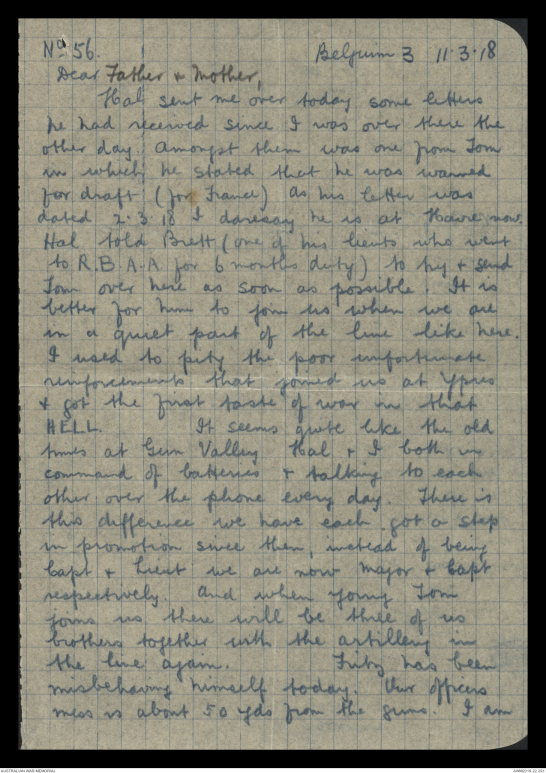 No 56.
Belgium 3 11.3.18
Dear Father & Mother,
Hal sent me over today some letters
he had received since I was over there the
other day. Amongst them was one from Tom
in which he stated that he was warned
for draft (for France) As his letter was
dated 2.3.18 I daresay he is at Havre now.
Hal told Brett (one of his lieuts who went
to R.B.A.A for 6 months duty) to try & send
Tom over here as soon as possible. It is
better for him to join us when we are
in a quiet part of the line like here.
I used to pity the poor unfortunate
reinforcements that joined us at Ypres
& got the first taste of war in that
HELL. It seems quite like the old
times at Gun Valley Hal & I both in
command of batteries & talking to each
other over the phone every day. There is
this difference we have each got a step
in promotion since then, instead of being
Capt & Lieut we are now Major & Capt
respectively. And when young Tom
joins us there will be three of us
brothers together with the artillery in
the line again. Fritz has been
misbehaving himself today. Our officers
mess is about 50 yds from the guns. I am
AUSTRALIAN WAR MEMORIAL